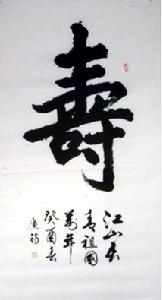 壽
江山長
青祖國
萬年
癸酉春